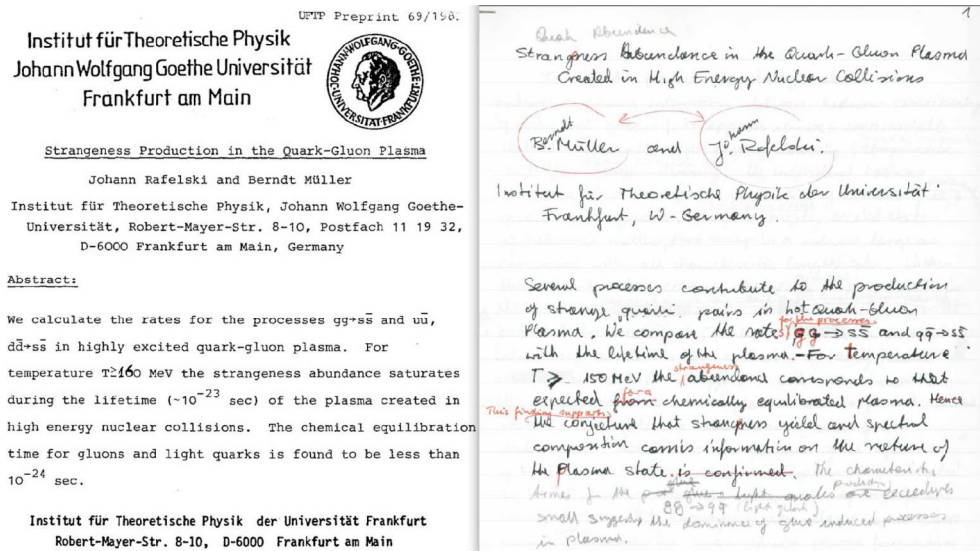 UFTP Preprint 69/198
Institut für Theoretische Physik
Johann Wolfgang Goethe Universität
Frankfurt am Main
JOHANN·WOLFGANG·GOETHE·UNIVERSITÄT·FRANKFURT
Strangeness Production in the Quark-Gluon Plasma
Johann Rafelski and Berndt Müller
Institut für Theoretische Physik, Johann Wolfgang Goethe-
Universität, Robert-Mayer-Str. 8-10, Postfach 11 19 32,
D-6000 Frankfurt am Main, Germany
Abstract:
We calculate the rates for the processes gg→ss̄ and uū,
dd̄→ss̄ in highly excited quark-gluon plasma. For
temperature T≥160 MeV the strangeness abundance saturates
during the lifetime (~10⁻²³ sec) of the plasma created in
high energy nuclear collisions. The chemical equilibration
time for gluons and light quarks is found to be less than
10⁻²⁴ sec.
Institut für Theoretische Physik der Universität Frankfurt
Robert-Mayer-Str. 8-10, D-6000 Frankfurt am Main
1
Quark Abundance
Strangeness Abundance in the Quark-Gluon Plasma
Created in High Energy Nuclear Collisions
Berndt Müller and Johann Rafelski.
Institut für Theoretische Physik der Universität
Frankfurt, W-Germany.
Several processes contribute to the production
of strange quark pairs in hot Quark-Gluon
for the processes
Plasma. We compare the rates gg→ss̄ and qq̄→ss̄
with the lifetime of the plasma. - For temperature
strangeness
T ≥ 150 MeV the abundance corresponds to that
for a
expected from chemically equilibrated plasma. Hence
This finding supports
the conjecture that strangness yield and spectral
composition carries information on the nature of
the plasma state is confirmed. The characteristic
times for the light quarks are exceedingly
gg→qq̄ (light quark)
small suggests the dominance of glue induced processes
in plasma.